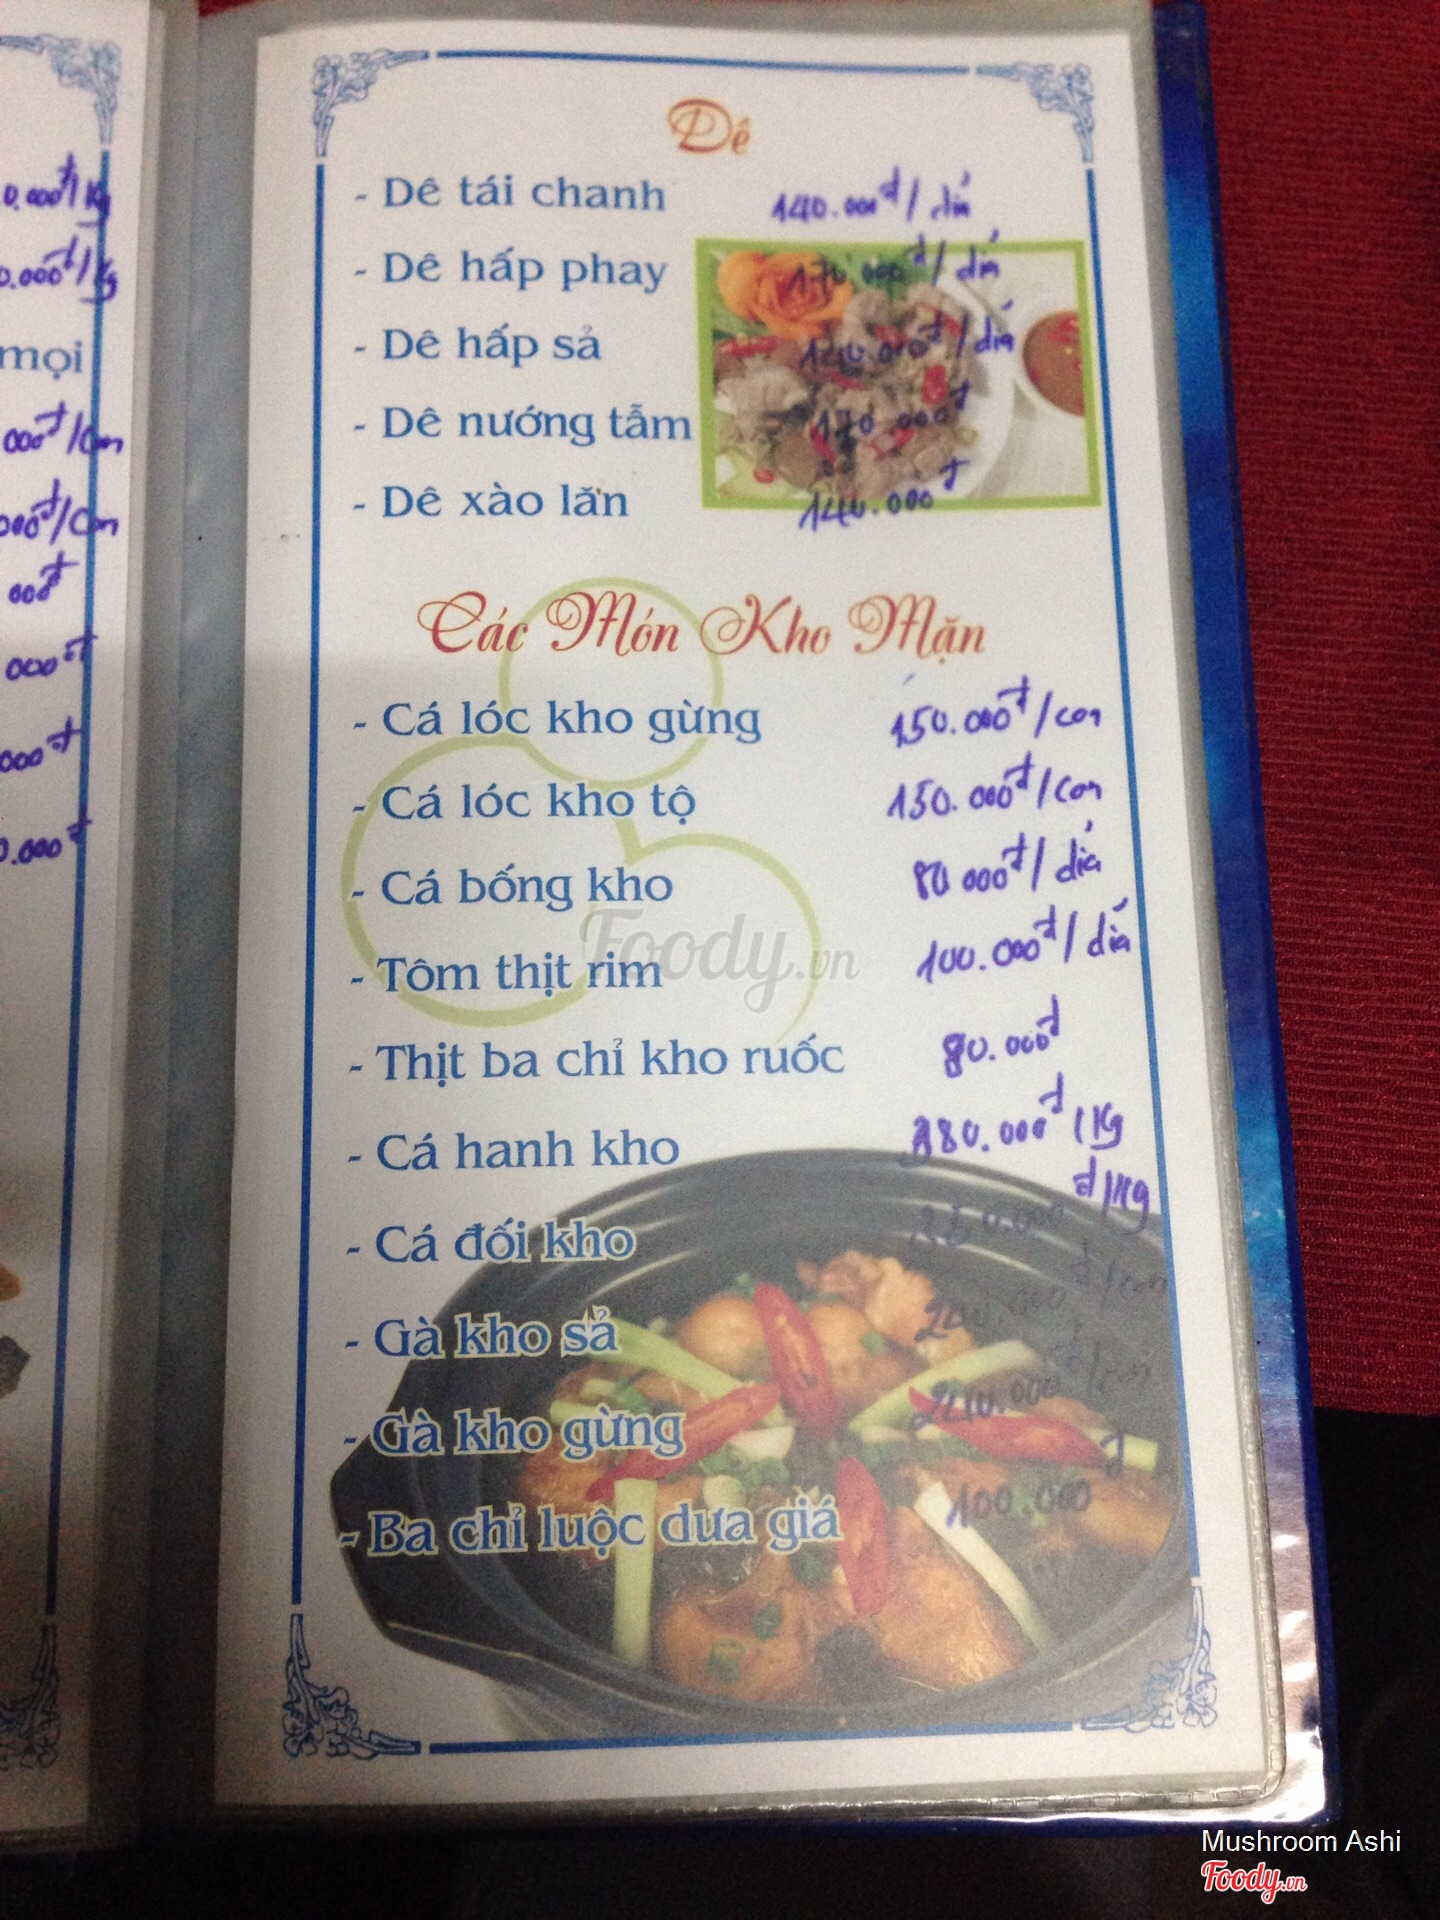 Dê
- Dê tái chanh 140.000đ/dĩa
- Dê hấp phay 170.000đ/dĩa
- Dê hấp sả 140.000đ/dĩa
- Dê nướng tẫm 170.000đ
- Dê xào lăn 140.000đ
Các Món Kho Mặn
- Cá lóc kho gừng 150.000đ/con
- Cá lóc kho tộ 150.000đ/con
- Cá bống kho 80.000đ/dĩa
- Tôm thịt rim 100.000đ/dĩa
- Thịt ba chỉ kho ruốc 80.000đ
- Cá hanh kho 380.000đ/Kg
- Cá đối kho 350.000đ/Kg
- Gà kho sả 240.000đ/con
- Gà kho gừng 240.000đ/con
- Ba chỉ luộc dưa giá 100.000đ
0.000đ/Kg
0.000đ/Kg
mọi
000đ/con
000đ/con
000đ
000đ
000đ
0.000đ
Foody.vn
Mushroom Ashi
Foody.vn